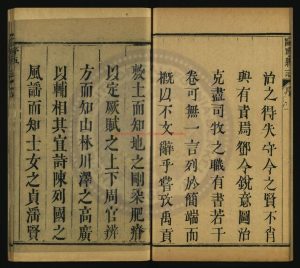 治之得失守令之賢不肖
與有責焉鄧今銳意圖治
克盡司牧之職有書若干
卷可無一言列於簡端而
概以不文辭乎嘗攷禹貢
敷土而知地之剛柔肥瘠
以定厥賦之上下周官辨
方而知山林川澤之高廣
以輔相其宜詩陳列國之
風謡而知士女之貞滛賢